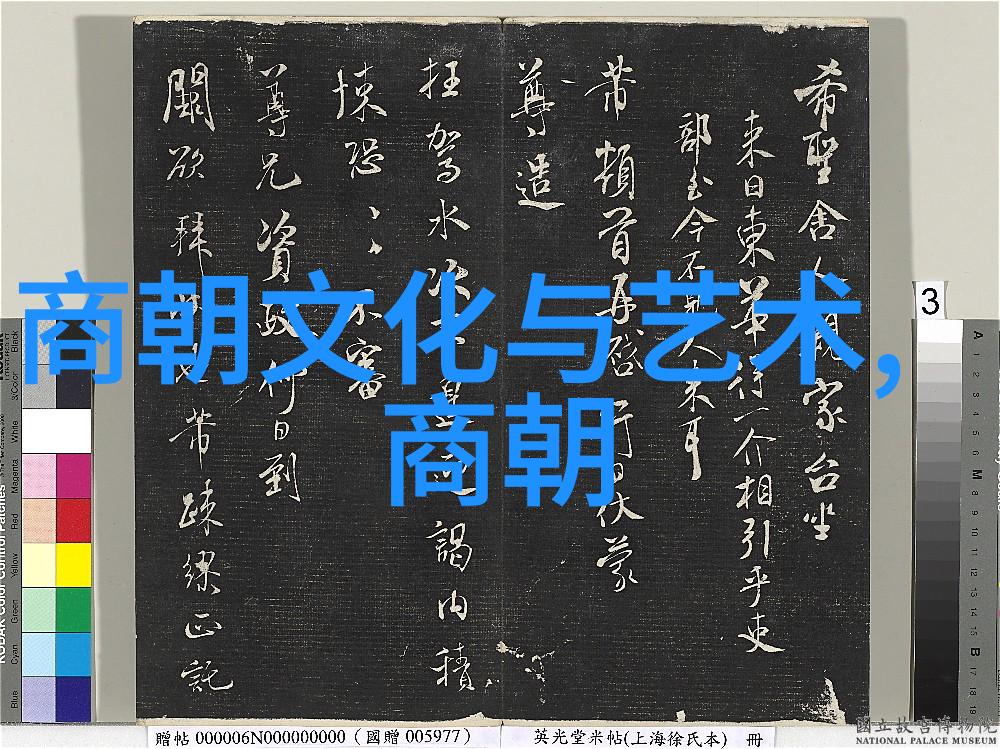 商朝文化与艺术,
商朝
希聖舍人 家台坐
来日東華待一介相引乎吏
部至今不見人来耳
芾頓首再啓 行日伏蒙
尊造
枉駕水 謁内積
悚恐、、不審
尊兄資政何日到
闕欲拜 芾疎繆正託
3
KODAK Color Control Patches
Blue
Cyan
Green
Yellow
Red
Magenta
White
3/Color
Black
A
1
2
3
4
5
6
M
8
9
10
11
12
13
14
15
B
17
18
19
贈帖 000006N000000000 (國贈 005977)
英光堂米帖(上海徐氏本) 冊
國立故宮博物院
NATIONAL PALACE MUSEUM